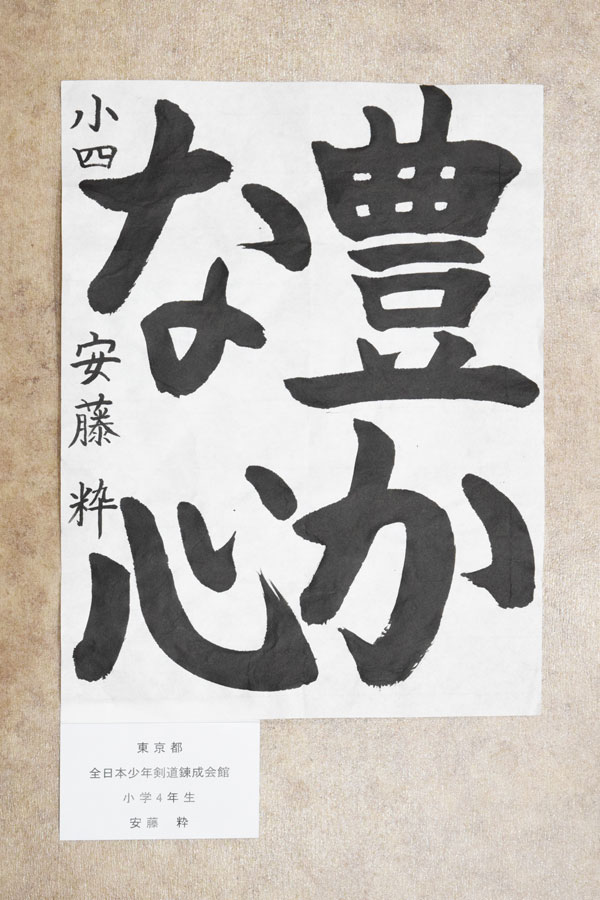 豊か
な心
小四 安藤 粋
東京都
全日本少年剣道錬成会館
小学4年生
安藤 粋